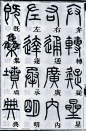 弁轉疑星
右通廣內
左達承明
既集墳典